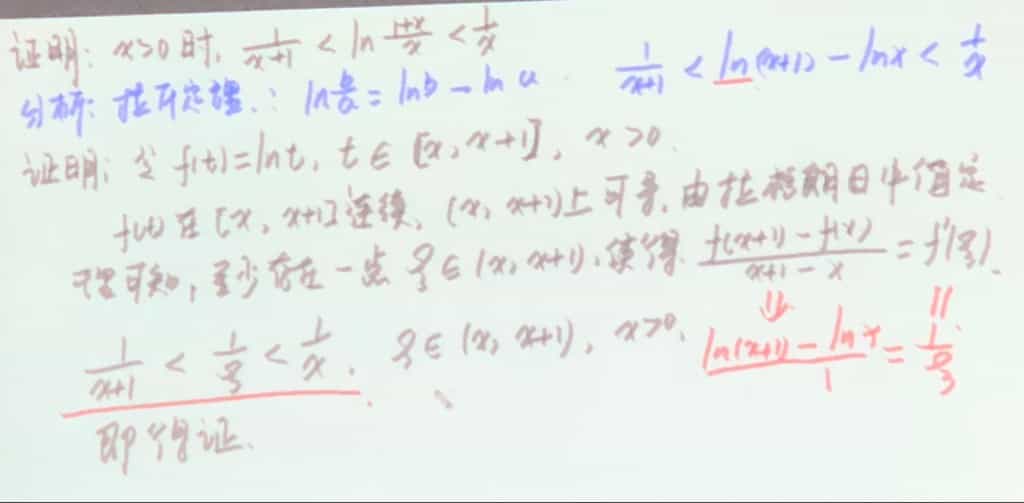 证明: x>0 时, \frac{1}{x+1} < ln \frac{1+x}{x} < \frac{1}{x}
分析: 拉氏定理. : ln\frac{b}{a} = lnb - ln a . \frac{1}{x+1} < ln(x+1) - lnx < \frac{1}{x}
证明: 令 f(t)=lnt, t∈[x, x+1], x>0.
f(t) 在 [x, x+1] 连续, (x, x+1) 上可导, 由拉格朗日中值定
理可知, 至少存在一点 ξ∈(x, x+1), 使得 \frac{f(x+1)-f(x)}{x+1-x} = f'(ξ).
\frac{1}{x+1} < \frac{1}{ξ} < \frac{1}{x}. ξ∈(x, x+1), x>0. \frac{ln(x+1)-lnx}{1} = \frac{1}{ξ}
即得证.